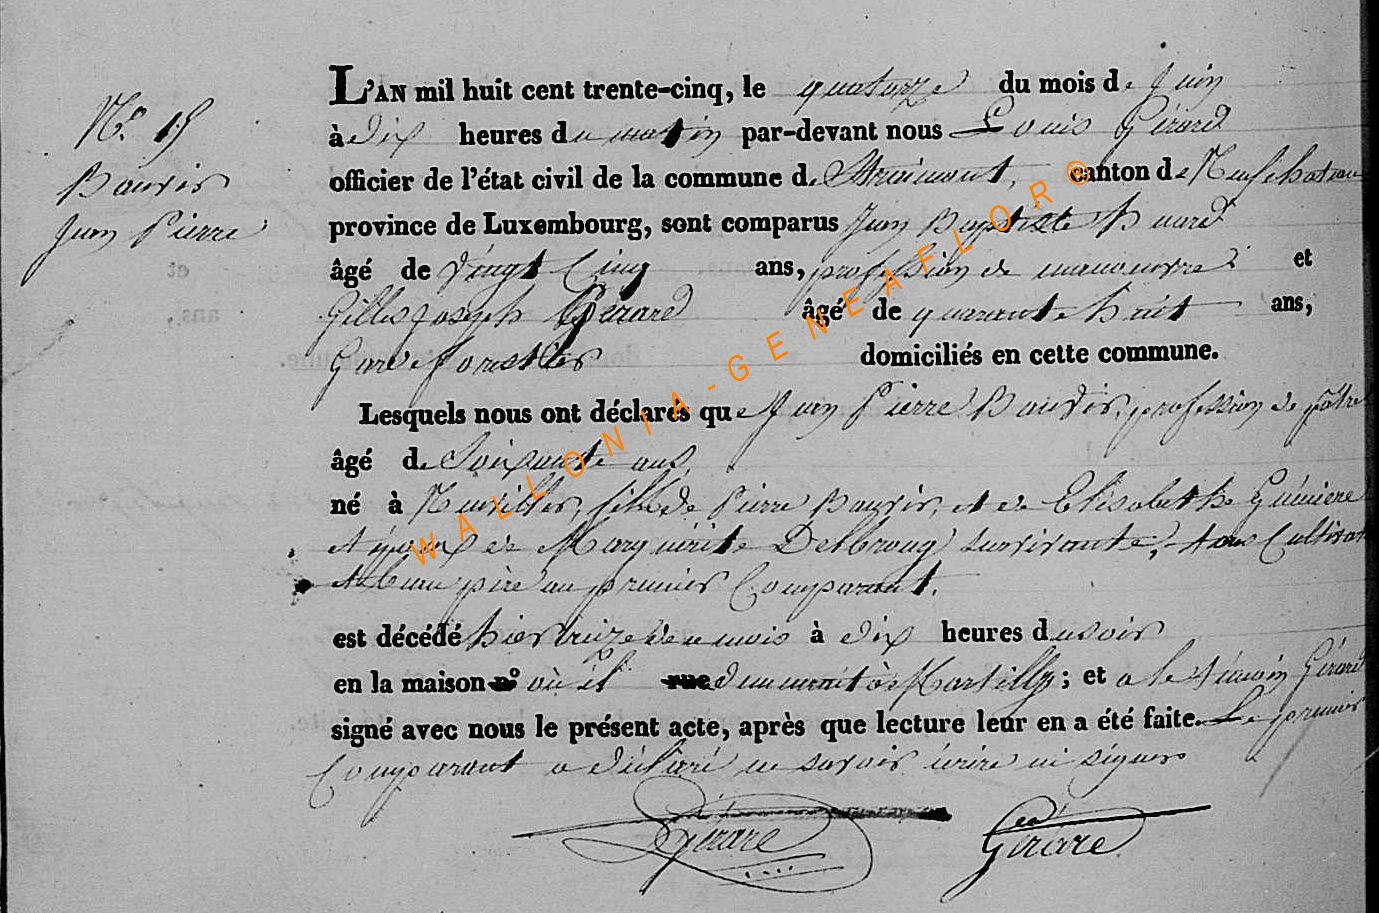 N.° 15
Bauvir
Jean Pierre
L'AN mil huit cent trente-cinq, le quatorze du mois de Juin
à dix heures du matin par-devant nous Louis Gérard
officier de l'état civil de la commune de Straimont, canton de Neufchateau
province de Luxembourg, sont comparus Jean Baptiste Huard
âgé de Vingt Cinq ans, profession de manoeuvre et
Gilles Joseph Gérard âgé de quarante huit ans,
Garde forestier domiciliés en cette commune.
Lesquels nous ont déclarés que Jean Pierre Bauvir, profession de pâtre
âgé de Soixante ans,
né à Neuvillers, fils de Pierre Bauvir, et de Elisabethe
et époux de Marguérite Delbrouq survivante, tous Cultivat
et beau père au premier Comparant.
est décédé hier treize de ce mois à dix heures du soir
en la maison n° où il rue demeurait à Martilly; et a le témoin Gérard
signé avec nous le présent acte, après que lecture leur en a été faite. Le premier
Comparant a déclaré ne savoir écrire ni signer
Gérard
Gérard
WALLONIA-GENEAFLOR©